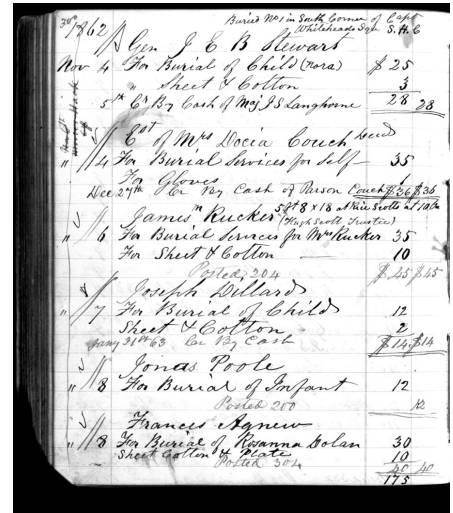 1862
Buried No 1 in South Corner of Capt
Whiteheads Sqr S. H. C
Gen J E B Stewart
Nov 4 For Burial of Child (Nora) $ 25
" Sheet & Cotton 3
5th Cr By Cash of Maj J S Langhorne 28 28
Est of Mrs Docia Couch Decd
" 4 For Burial Services for Self 35
For Gloves 1
Dec 27th Cr By Cash of Parson Couch $36 $36
James Rucker 5 ft 8 x 18 at
(Hugh Scott Trustee)
" 6 For Burial Services for Mrs Rucker 35
For Sheet & Cotton 10
Posted 204 $45 $45
Joseph Dillard
" 7 For Burial of Child 12
Sheet & Cotton 2
Jany 21st 63 Cr By Cash $14 $14
Jonas Poole
" 8 For Burial of Infant 12
Posted 200 12
Frances Agnew
" 8 For Burial of Rosanna Dolan 30
Sheet Cotton & Plate 10
Posted 304 40 40
175